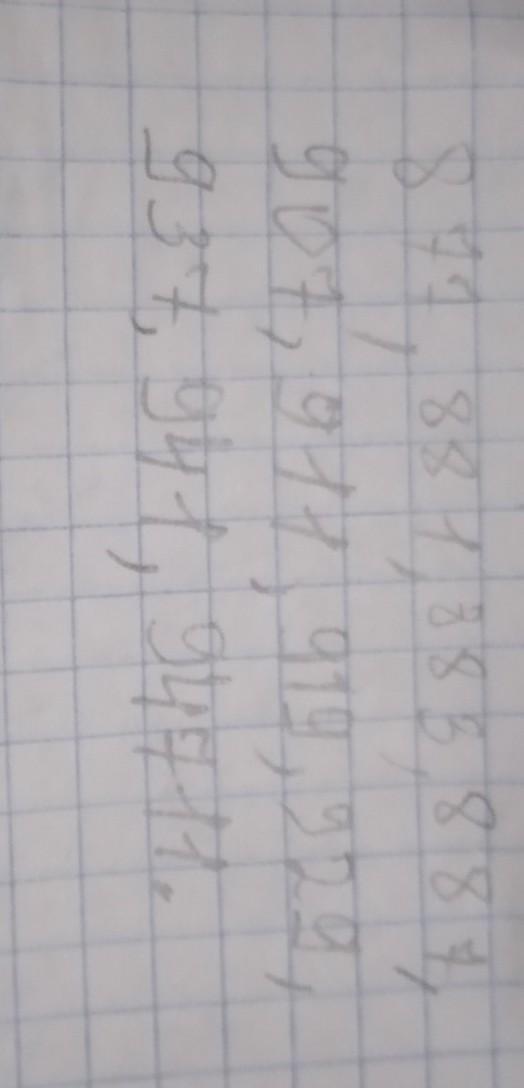 877, 881, 883, 887,
907, 911, 919, 929,
937, 941, 94711.